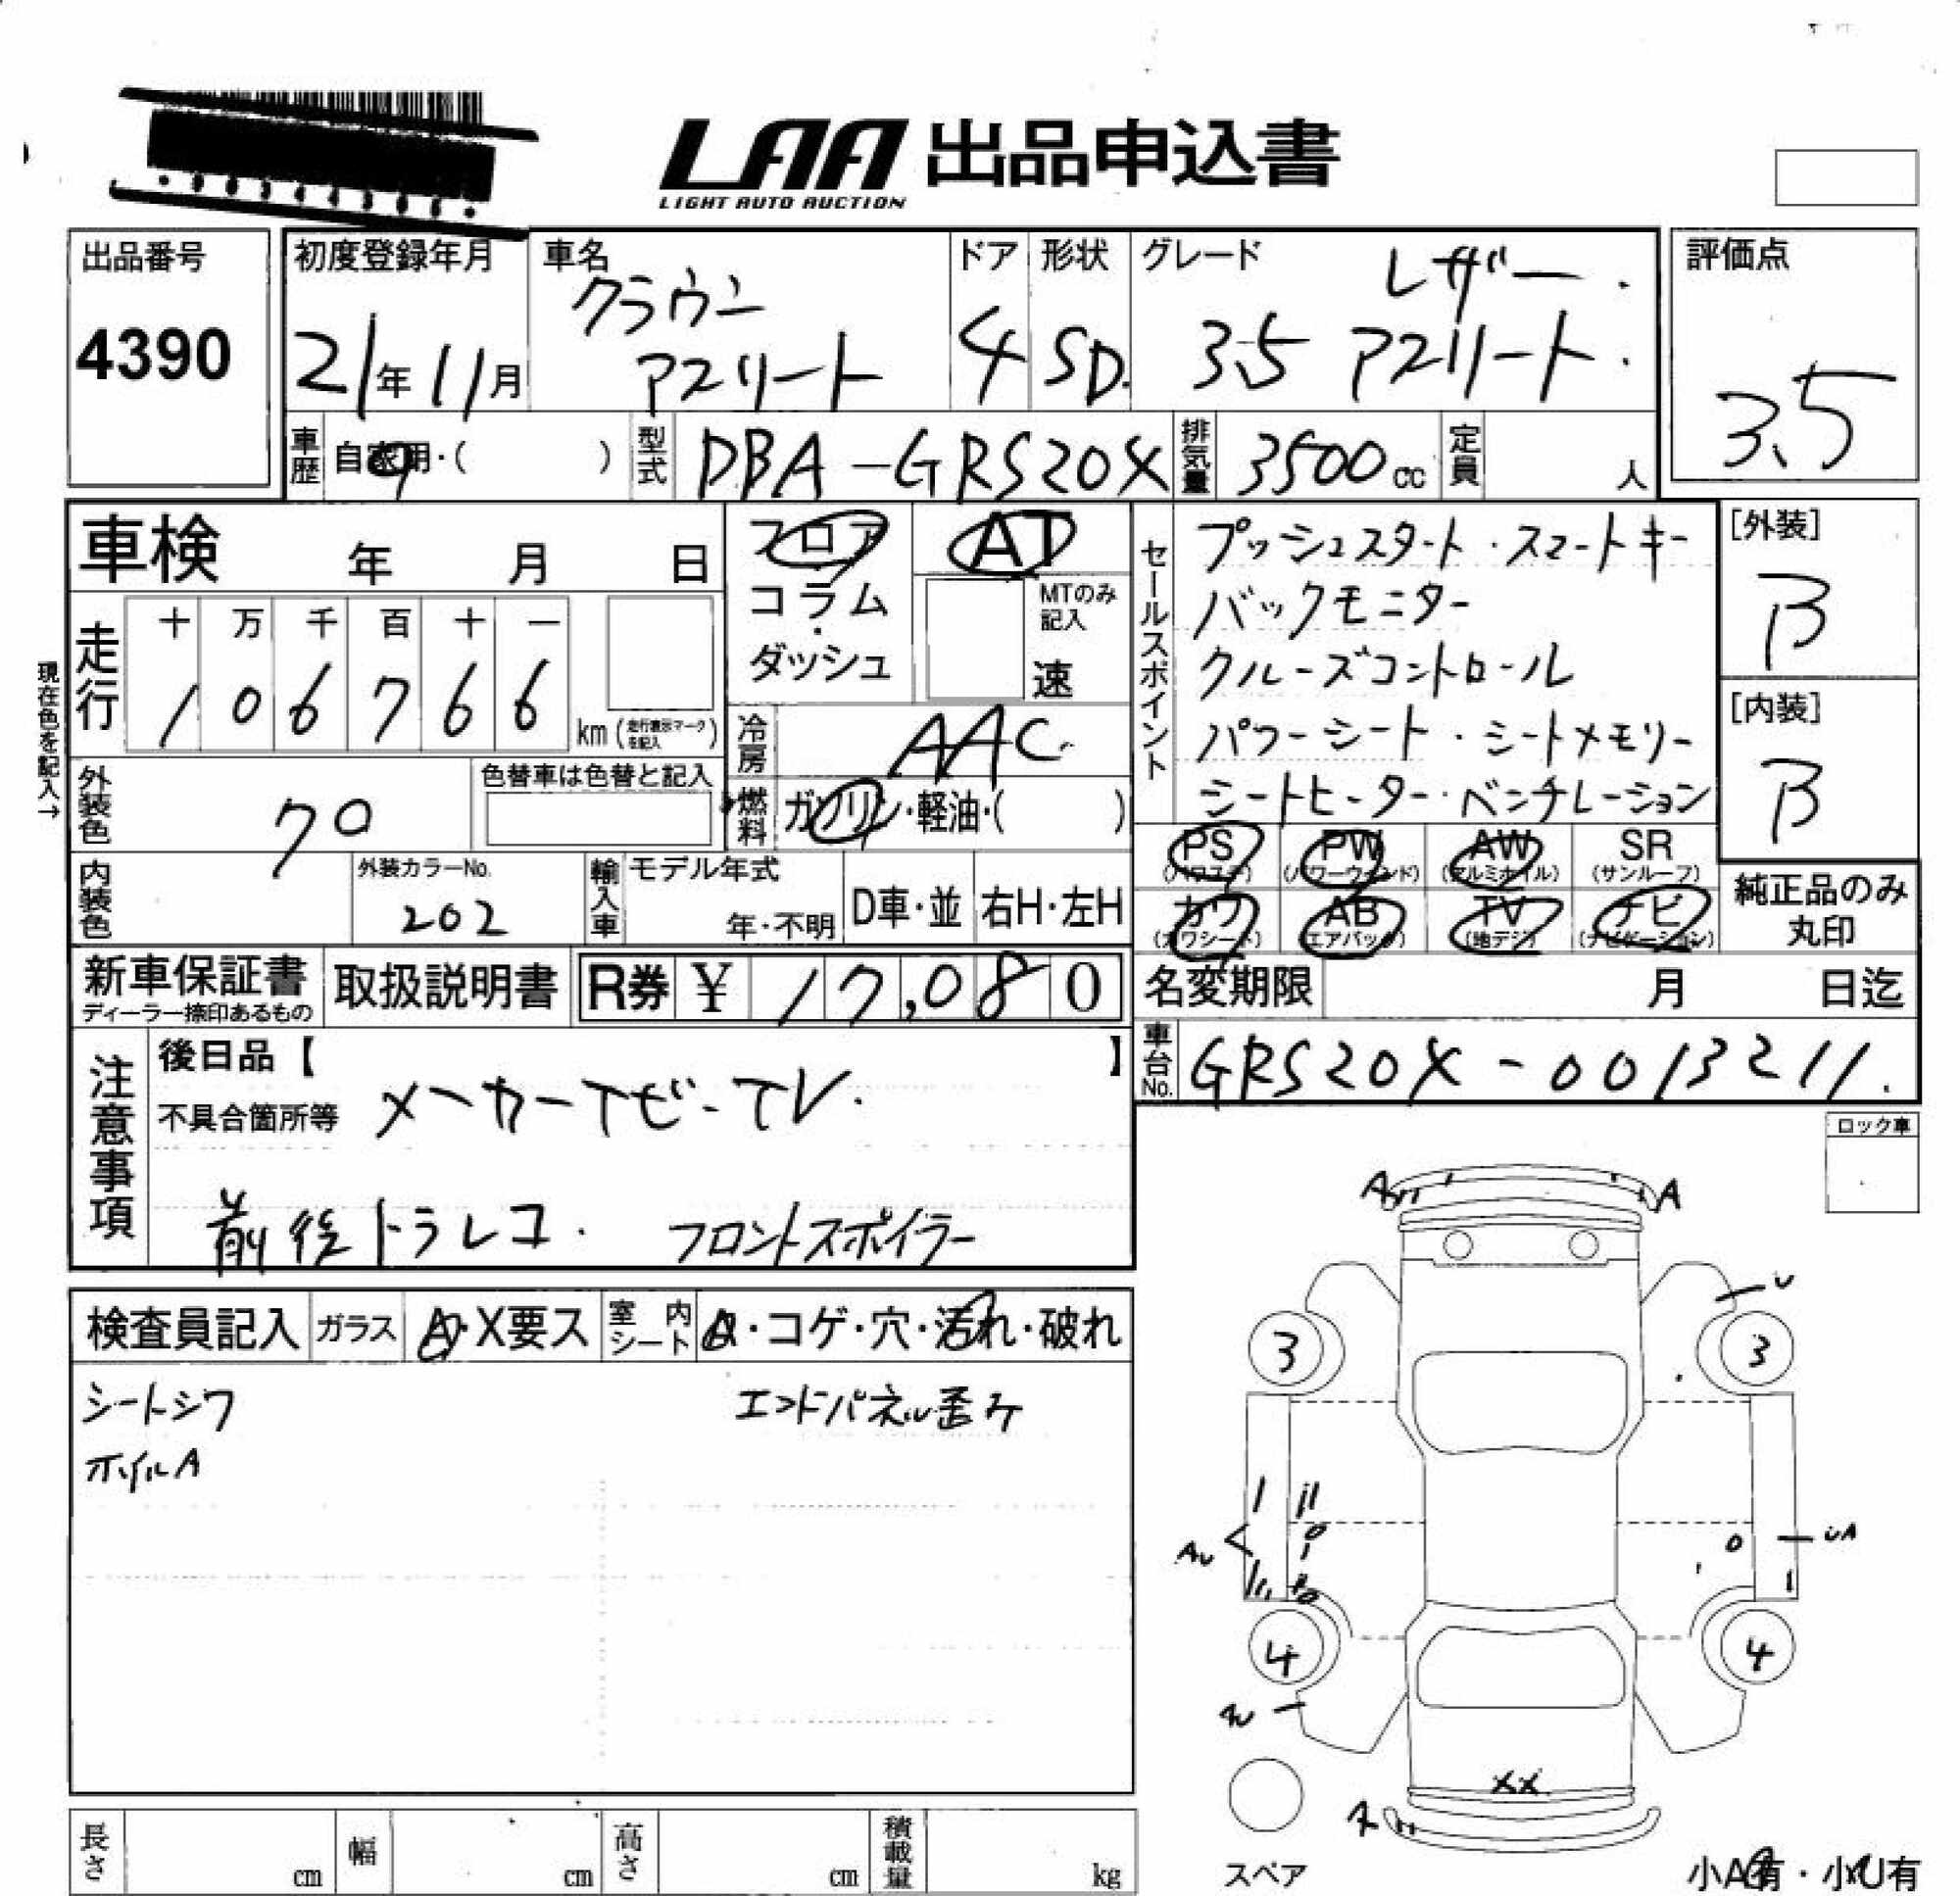 LAA 出品申込書
LIGHT AUTO AUCTION
出品番号
4390
初度登録年月
21年11月
車名
クラウン
アスリート
ドア
4
形状
SD.
グレード
レザー.
3.5 アスリート.
評価点
3.5
車歴
自家用・( )
型式
DBA-GRS20X
排気量
3500cc
定員
人
車検 年 月 日
現在色を記入→
走行
十 万 千 百 十 一
1 0 6 7 6 6
km(走行表示マークを記入)
フロア
コラム
・
ダッシュ
AT
MTのみ記入
速
冷房
AAC
燃料
ガソリン・軽油・( )
外装色
クロ
色替車は色替と記入
内装色
外装カラーNo.
202
輸入車
モデル年式
年・不明
D車・並
右H・左H
セールスポイント
プッシュスタート・スマートキー
バックモニター
クルーズコントロール
パワーシート・シートメモリー
シートヒーター・ベンチレーション
[外装]
B
[内装]
B
PS
(パワステ)
PW
(パワーウィンド)
AW
(アルミホイル)
SR
(サンルーフ)
カワ
(カワシート)
AB
(エアバック)
TV
(地デジ)
ナビ
(ナビゲーション)
純正品のみ
丸印
新車保証書
ディーラー捺印あるもの
取扱説明書
R券 ¥ 17,080
名変期限 月 日迄
車台No.
GRS20X-0013211.
注意事項
後日品【 】
不具合箇所等
メーカーナビ-TV.
前後ドラレコ. フロントスポイラー
ロック車
検査員記入
ガラス
A・X要ス
室内シート
・コゲ・穴・汚れ・破れ
シートシワ
エンドパネル歪み
ホイルA
A A
U
3 3
AU
UA
4 4
XX
A
スペア
小A有・小U有
長さ cm
幅 cm
高さ cm
積載量 kg